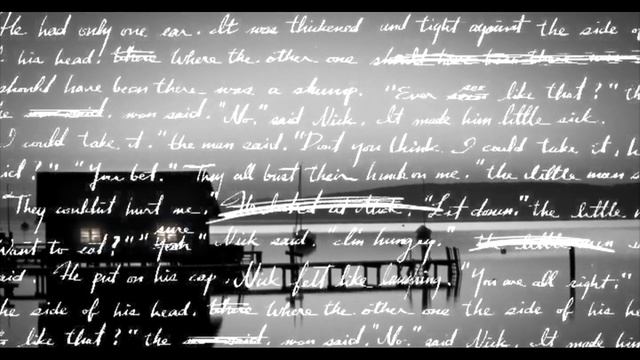 He had only one ear. It was thickened and tight against the side of
his head. there Where the other one should have been there was
should have been there was a stump. "Ever see like that?"
said. man said. "No." said Nick. It made him little sick.
I could take it." the man said. "Don't you think I could take it,
"You bet." "They all bust their hands on me." the little man
"They couldn't hurt me. He looked at Nick. "Sit down." the little
Want to eat?" "sure Yeah" Nick said "I'm hungry." the little
aid. He put on his cap. Nick felt like laughing. "You are all right."
he side of his head. there Where the other one the side of his
like that?" the said. man said. "No." said Nick. It made him